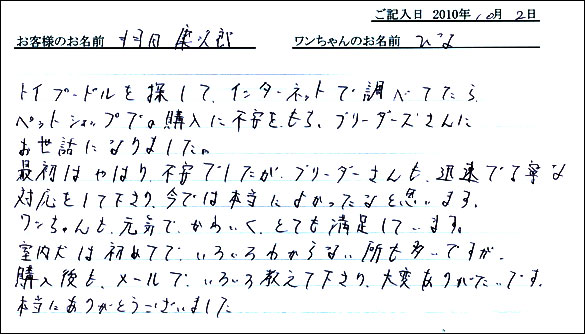 ご記入日 2010年10月2日
お客様のお名前 羽田 康次郎 ワンちゃんのお名前 ひな
トイプードルを探して、インターネットで調べてたら、
ペットショップでの購入に不安をもち、ブリーダーズさんに
お世話になりました。
最初はやはり、不安でしたが、ブリーダーさんも、迅速で丁寧な
対応をして下さり、今では本当によかったなと思います。
ワンちゃんも、元気で、かわいく、とても満足しています。
室内犬は初めてで、いろいろわからない所も多いですが、
購入後も、メールで、いろいろ教えて下さり、大変ありがたいです。
本当にありがとうございました